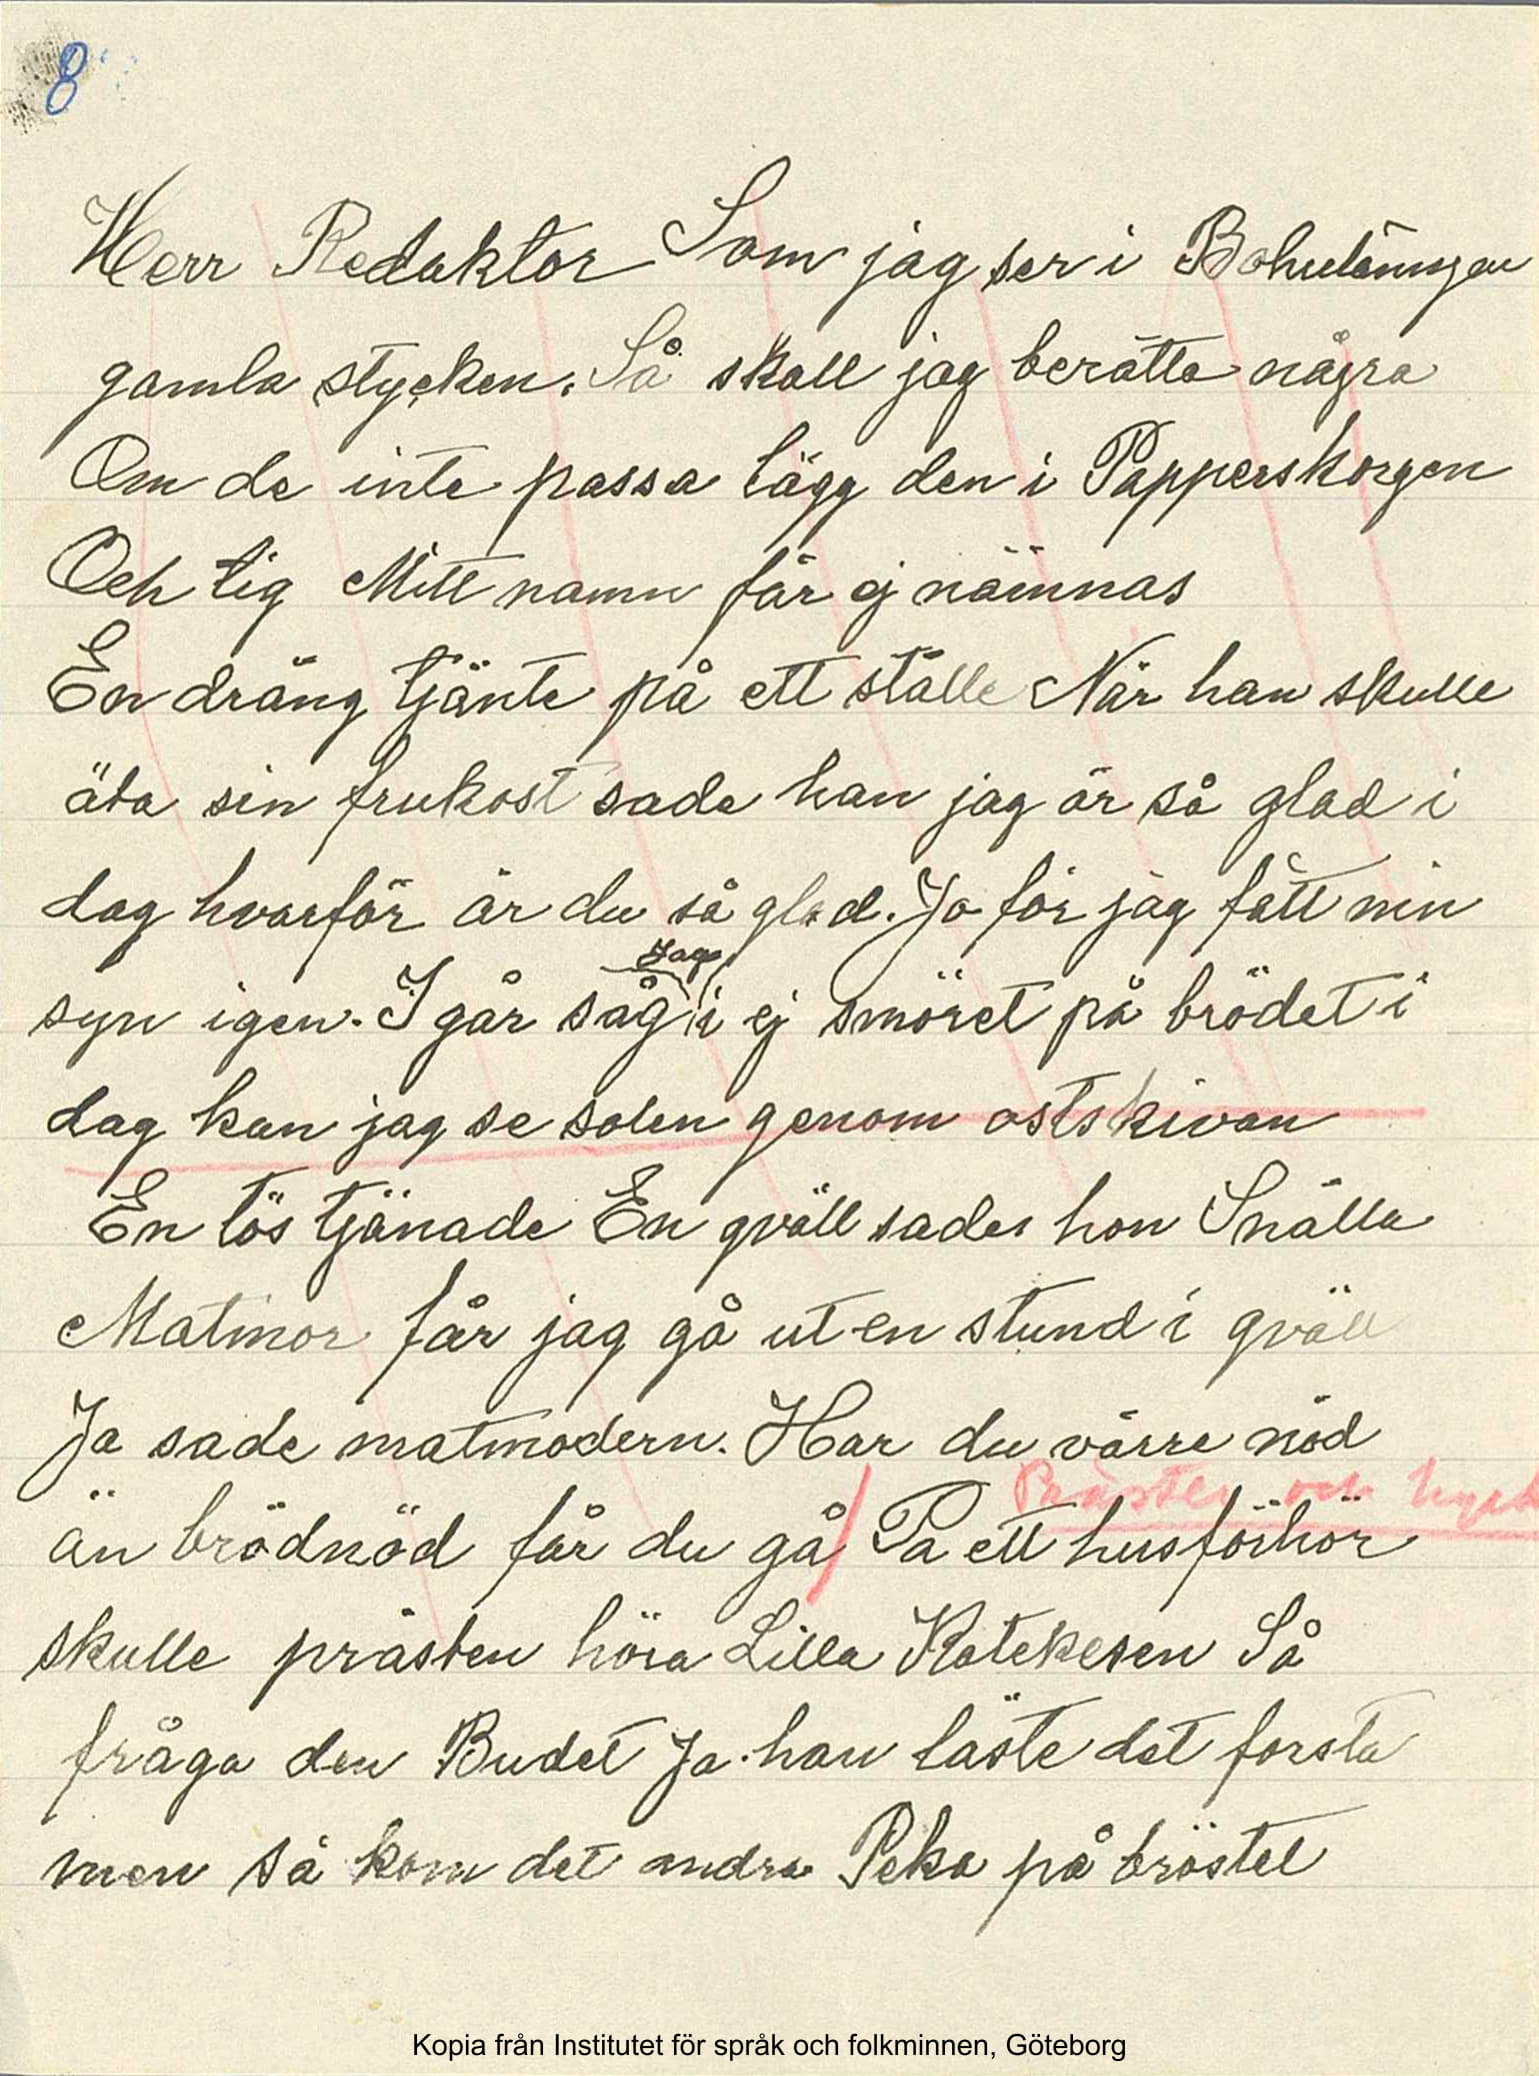 8
Herr Redaktör Som jag ser i Bohusläningen
gamla stycken. Så skall jag berätta några
Om de inte passa lägg den i Papperskorgen
Och tig Mitt namn får ej nämnas
En dräng tjänte på ett ställe När han skulle
äta sin frukost sade han jag är så glad i
dag hvarför är du så glad. Jo för jag fått min
syn igen. I går såg i ej smöret på brödet i
Jag
dag kan jag se solen genom ostskivan
En tös tjänade En qväll sade hon Snälla
Matmor får jag gå ut en stund i qväll
Ja sade matmodern. Har du värre nöd
Prästen och
än brödnöd får du gå / På ett husförhör
skulle prästen höra Lilla Katekesen Så
fråga den Budet Ja han läste det första
men så kom det andra Peka på bröstet
Kopia från Institutet för språk och folkminnen, Göteborg